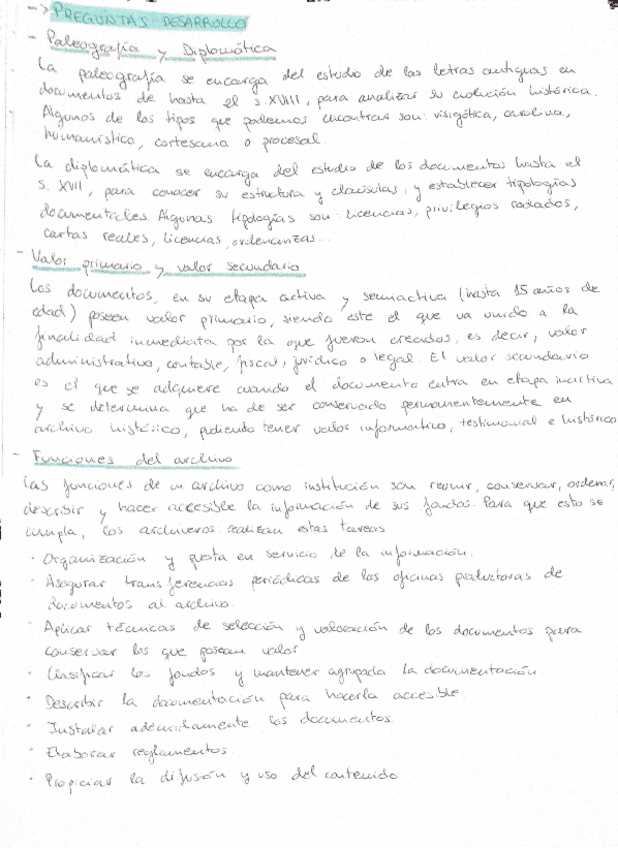 -> PREGUNTAS DESARROLLO
- Paleografía y Diplomática
La paleografía se encarga del estudio de las letras antiguas en
documentos de hasta el s. XVIII, para analizar su evolución histórica.
Algunos de los tipos que podemos encontrar son: visigótica, carolina,
humanística, cortesana o procesal.
La diplomática se encarga del estudio de los documentos hasta el
s. XVII, para conocer su estructura y claúsulas, y establecer tipologías
documentales. Algunas tipologías son: licencias, privilegios rodados,
cartas reales, licencias, ordenanzas...
- Valor primario y valor secundario
Los documentos, en su etapa activa y semiactiva (hasta 15 años de
edad) poseen valor primario, siendo este el que va unido a la
finalidad inmediata por la que fueron creados, es decir, valor
administrativo, contable, fiscal, jurídico o legal. El valor secundario
es el que se adquiere cuando el documento entra en etapa inactiva
y se determina que ha de ser conservado permanentemente en
archivo histórico, pudiendo tener valor informativo, testimonial e histórico
- Funciones del archivo
Las funciones de un archivo como institución son reunir, conservar, ordenar,
describir y hacer accesible la información de sus fondos. Para que esto se
cumpla, los archiveros realizan estas tareas
· Organización y puesta en servicio de la información.
· Asegurar transferencias periódicas de las oficinas productoras de
documentos al archivo.
· Aplicar técnicas de selección y valoración de los documentos para
conservar los que posean valor
· Clasificar los fondos y mantener agrupada la documentación
· Describir la documentación para hacerla accesible.
· Instalar adecuadamente los documentos.
· Elaborar reglamentos.
· Propiciar la difusión y uso del contenido